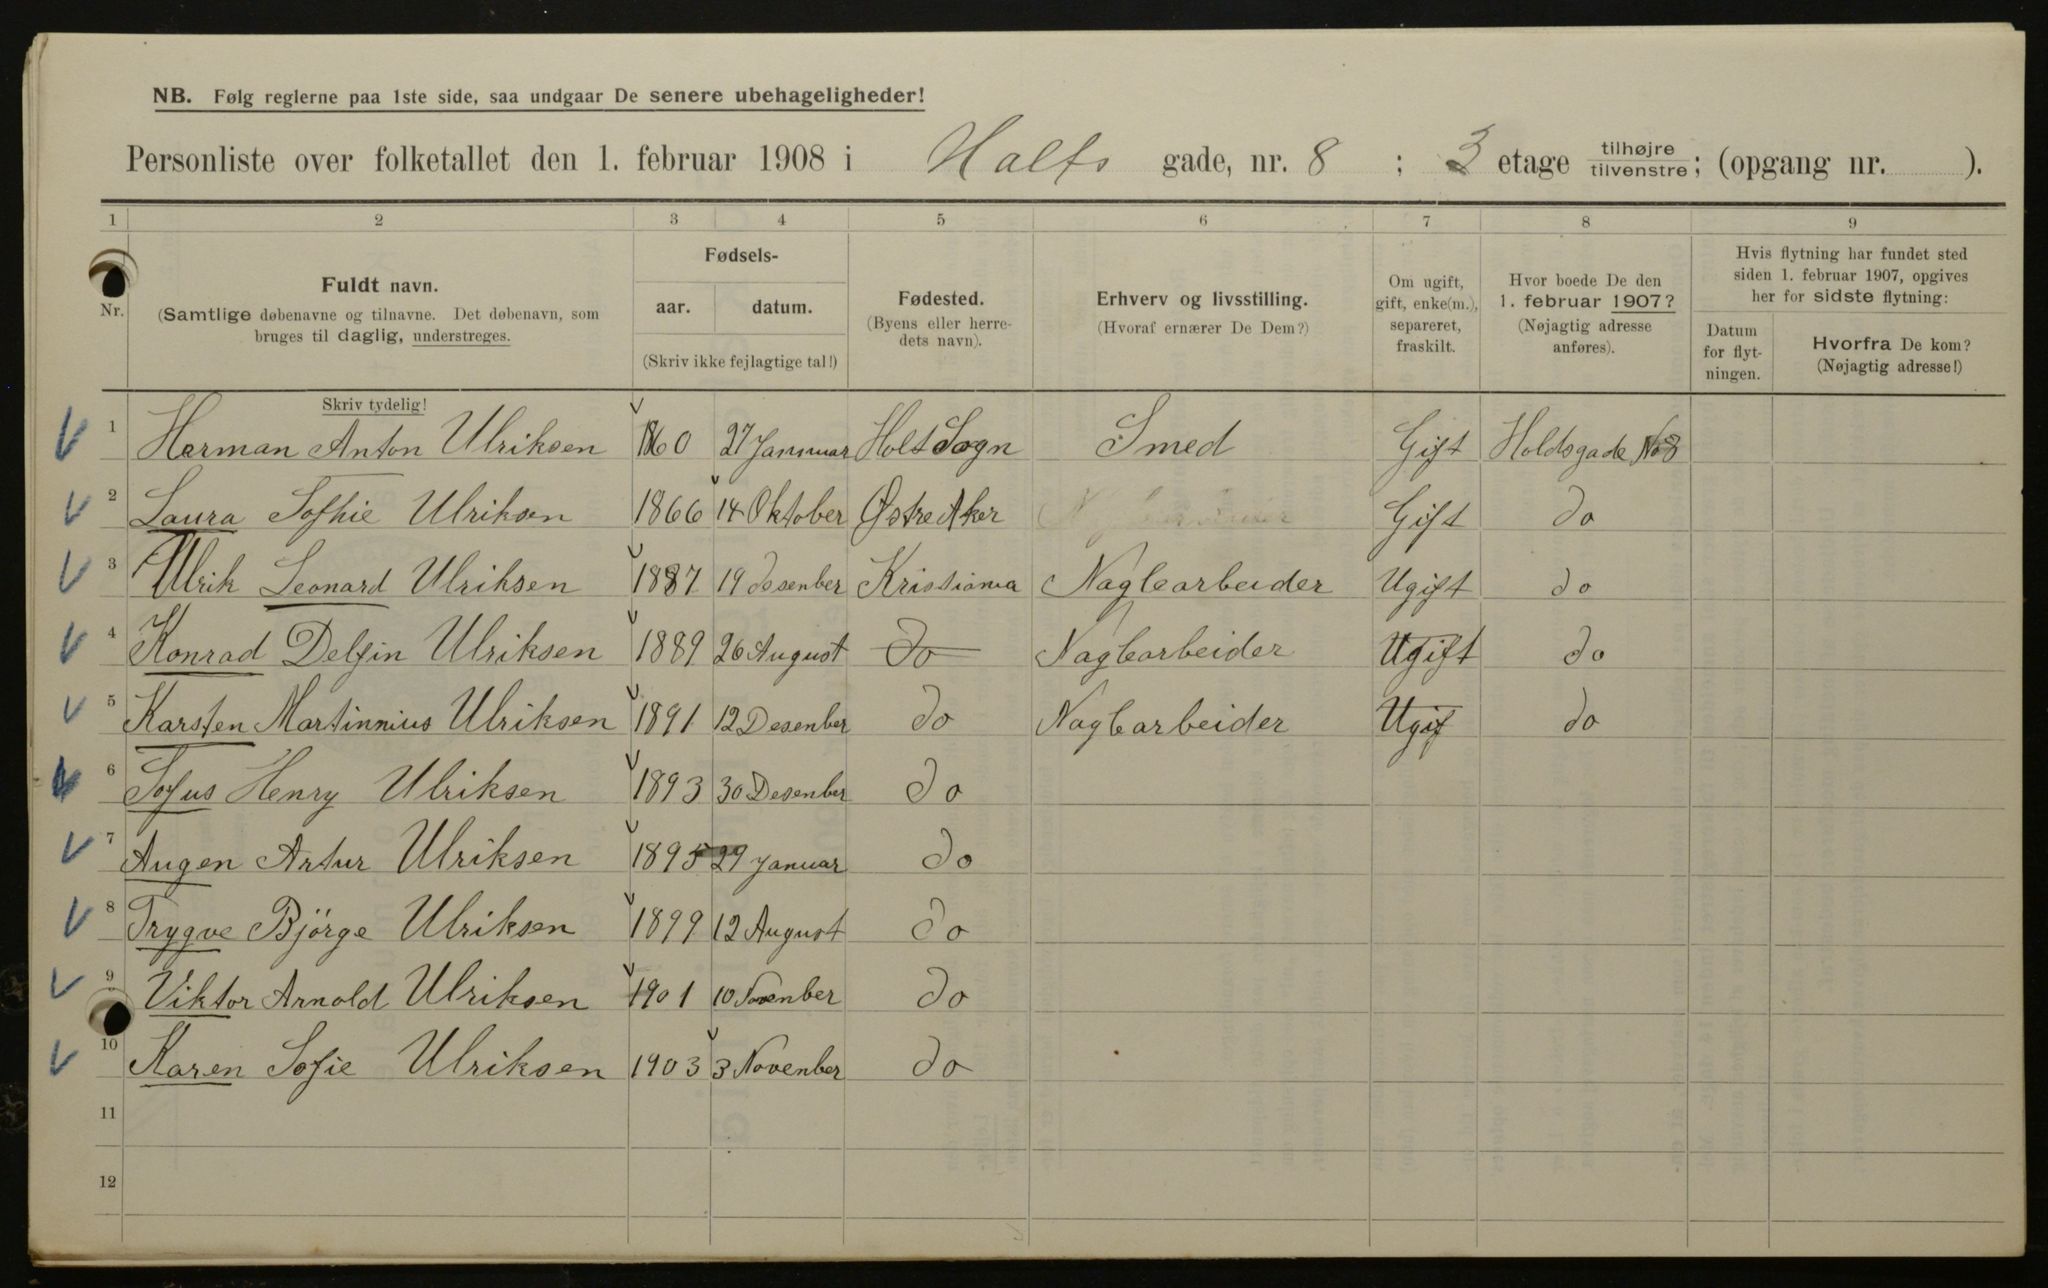 NB. Følg reglerne paa 1ste side, saa undgaar De senere ubehageligheder!
Personliste over folketallet den 1. februar 1908 i Halfs gade, nr. 8 ; 3 etage tilhøjre/tilvenstre; (opgang nr. ).
1 2 3 4 5 6 7 8 9
Nr.
Fuldt navn.
(Samtlige døbenavne og tilnavne. Det døbenavn, som
bruges til daglig, understreges.
Skriv tydelig!
Fødsels-
aar. datum.
(Skriv ikke fejlagtige tal!)
Fødested.
(Byens eller herre-
dets navn).
Erhverv og livsstilling.
(Hvoraf ernærer De Dem?)
Om ugift,
gift, enke(m.),
separeret,
fraskilt.
Hvor boede De den
1. februar 1907?
(Nøjagtig adresse
anføres).
Hvis flytning har fundet sted
siden 1. februar 1907, opgives
her for sidste flytning:
Datum
for flyt-
ningen.
Hvorfra De kom?
(Nøjagtig adresse!)
1 Herman Anton Ulriksen 1860 27 Januar Holt Sogn Smed Gift Holdsgade No 8
2 Laura Sofhie Ulriksen 1866 14 Oktober Østre Aker Gift do
3 Ulrik Leonard Ulriksen 1887 19 desenber Kristiania Naglearbeider Ugift do
4 Konrad Delfin Ulriksen 1889 26 August do Naglearbeider Ugift do
5 Karsten Martinnius Ulriksen 1891 12 Desenber do Naglearbeider Ugif do
6 Sofus Henry Ulriksen 1893 30 Desenber do
7 Augen Artur Ulriksen 1895 29 Januar do
8 Trygve Bjørge Ulriksen 1899 12 August do
9 Viktor Arnold Ulriksen 1901 10 Novenber do
10 Karen Sofie Ulriksen 1903 3 Novenber do
11
12